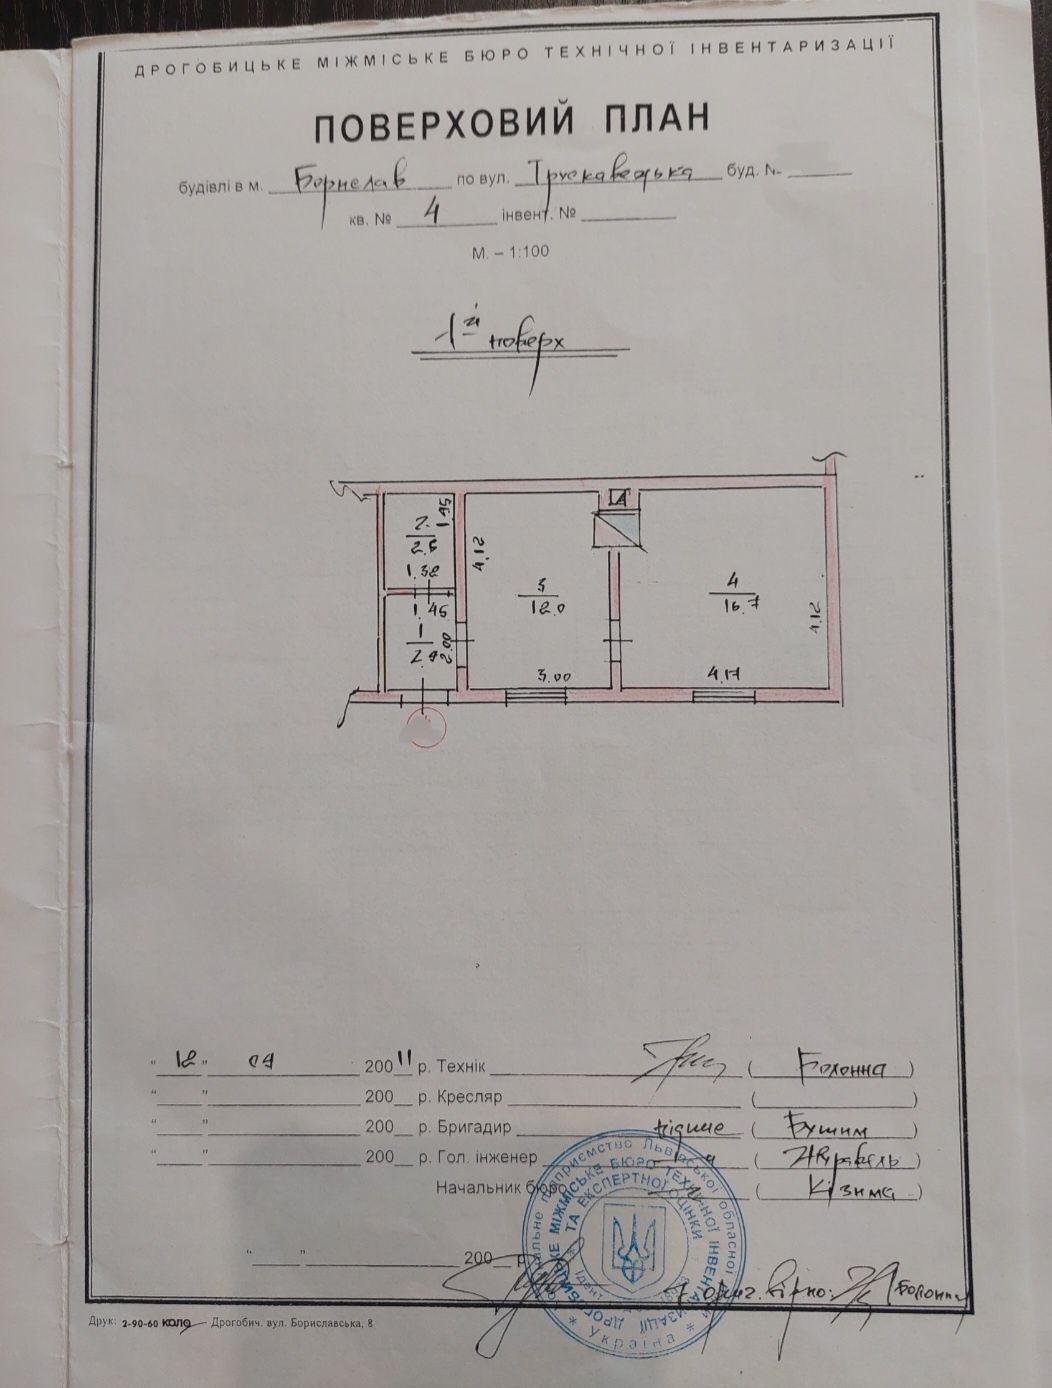 ДРОГОБИЦЬКЕ МІЖМІСЬКЕ БЮРО ТЕХНІЧНОЇ ІНВЕНТАРИЗАЦІЇ
ПОВЕРХОВИЙ ПЛАН
будівлі в м. Борислав по вул. Трускавецька буд. №
кв. № 4 інвент. №
М. – 1:100
1й поверх
2 1.95
2.6 4.12
1.38 3 4
1.45 12.0 16.7
1 2.00 4.12
2.9
3.00 4.17
"12" 04 200 11 р. Технік (Болонна)
"__" 200__ р. Кресляр ( )
"__" 200__ р. Бригадир (Бушим)
"__" 200__ р. Гол. інженер (Журавель)
Начальник бюро (Кізима)
"__" 200__ р.
З ориг. вірно: (Болонна
підприємство Львівської обласної
ДРОГОБИЦЬКЕ МІЖМІСЬКЕ БЮРО ТЕХНІЧНОЇ ІНВЕНТАРИЗАЦІЇ
ТА ЕКСПЕРТНОЇ ОЦІНКИ
* Україна *
Друк: 2-90-60 КОЛО – Дрогобич. вул. Бориславська, 8